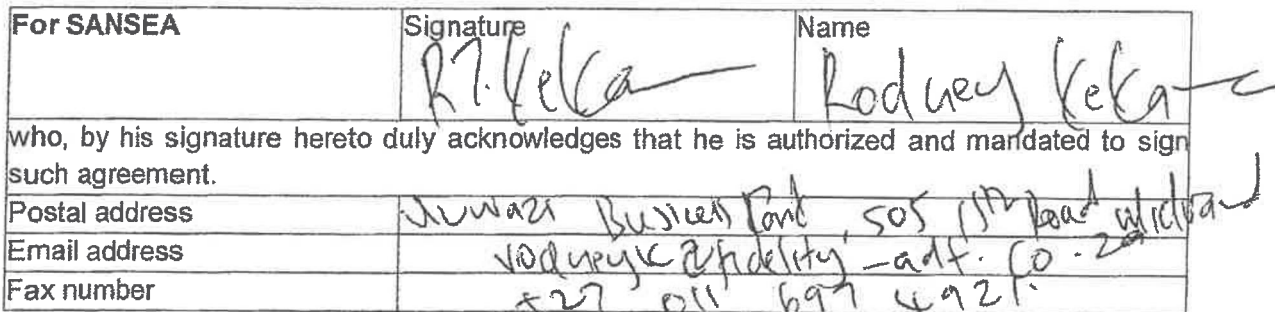 For SANSEA Signature Name
R.T. Keka Rodney Keka
who, by his signature hereto duly acknowledges that he is authorized and mandated to sign
such agreement.
Postal address Business 505 Road
Email address rodneyk@fidelity-adt.co.za
Fax number +27 011 697 4921.